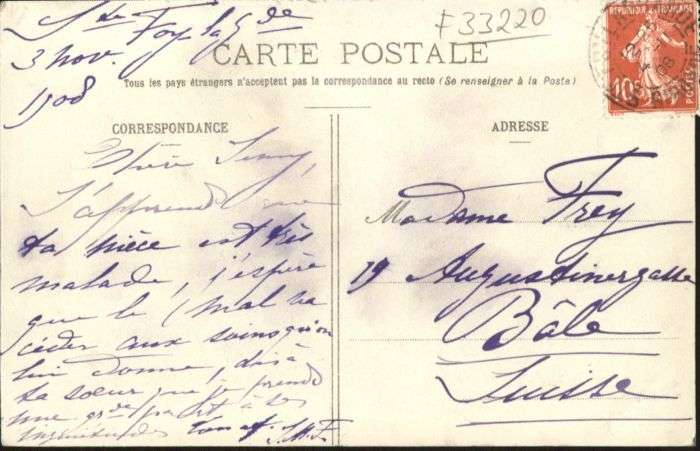 F33220
Ste Foy la Gde
3 nov.
1908
CARTE POSTALE
Tous les pays étrangers n'acceptent pas la correspondance au recto (Se renseigner à la Poste)
RÉPUBLIQUE FRANÇAISE
10
CORRESPONDANCE
Chère Jenny,
J'apprends que
ta nièce est très
malade, j'espère
que le mal va
céder aux soins qu'on
lui donne, dis à
ta soeur que je prends
une gde part à ses
inquiétudes
ADRESSE
Madame Frey
19 Augustinergasse
Bâle
Suisse